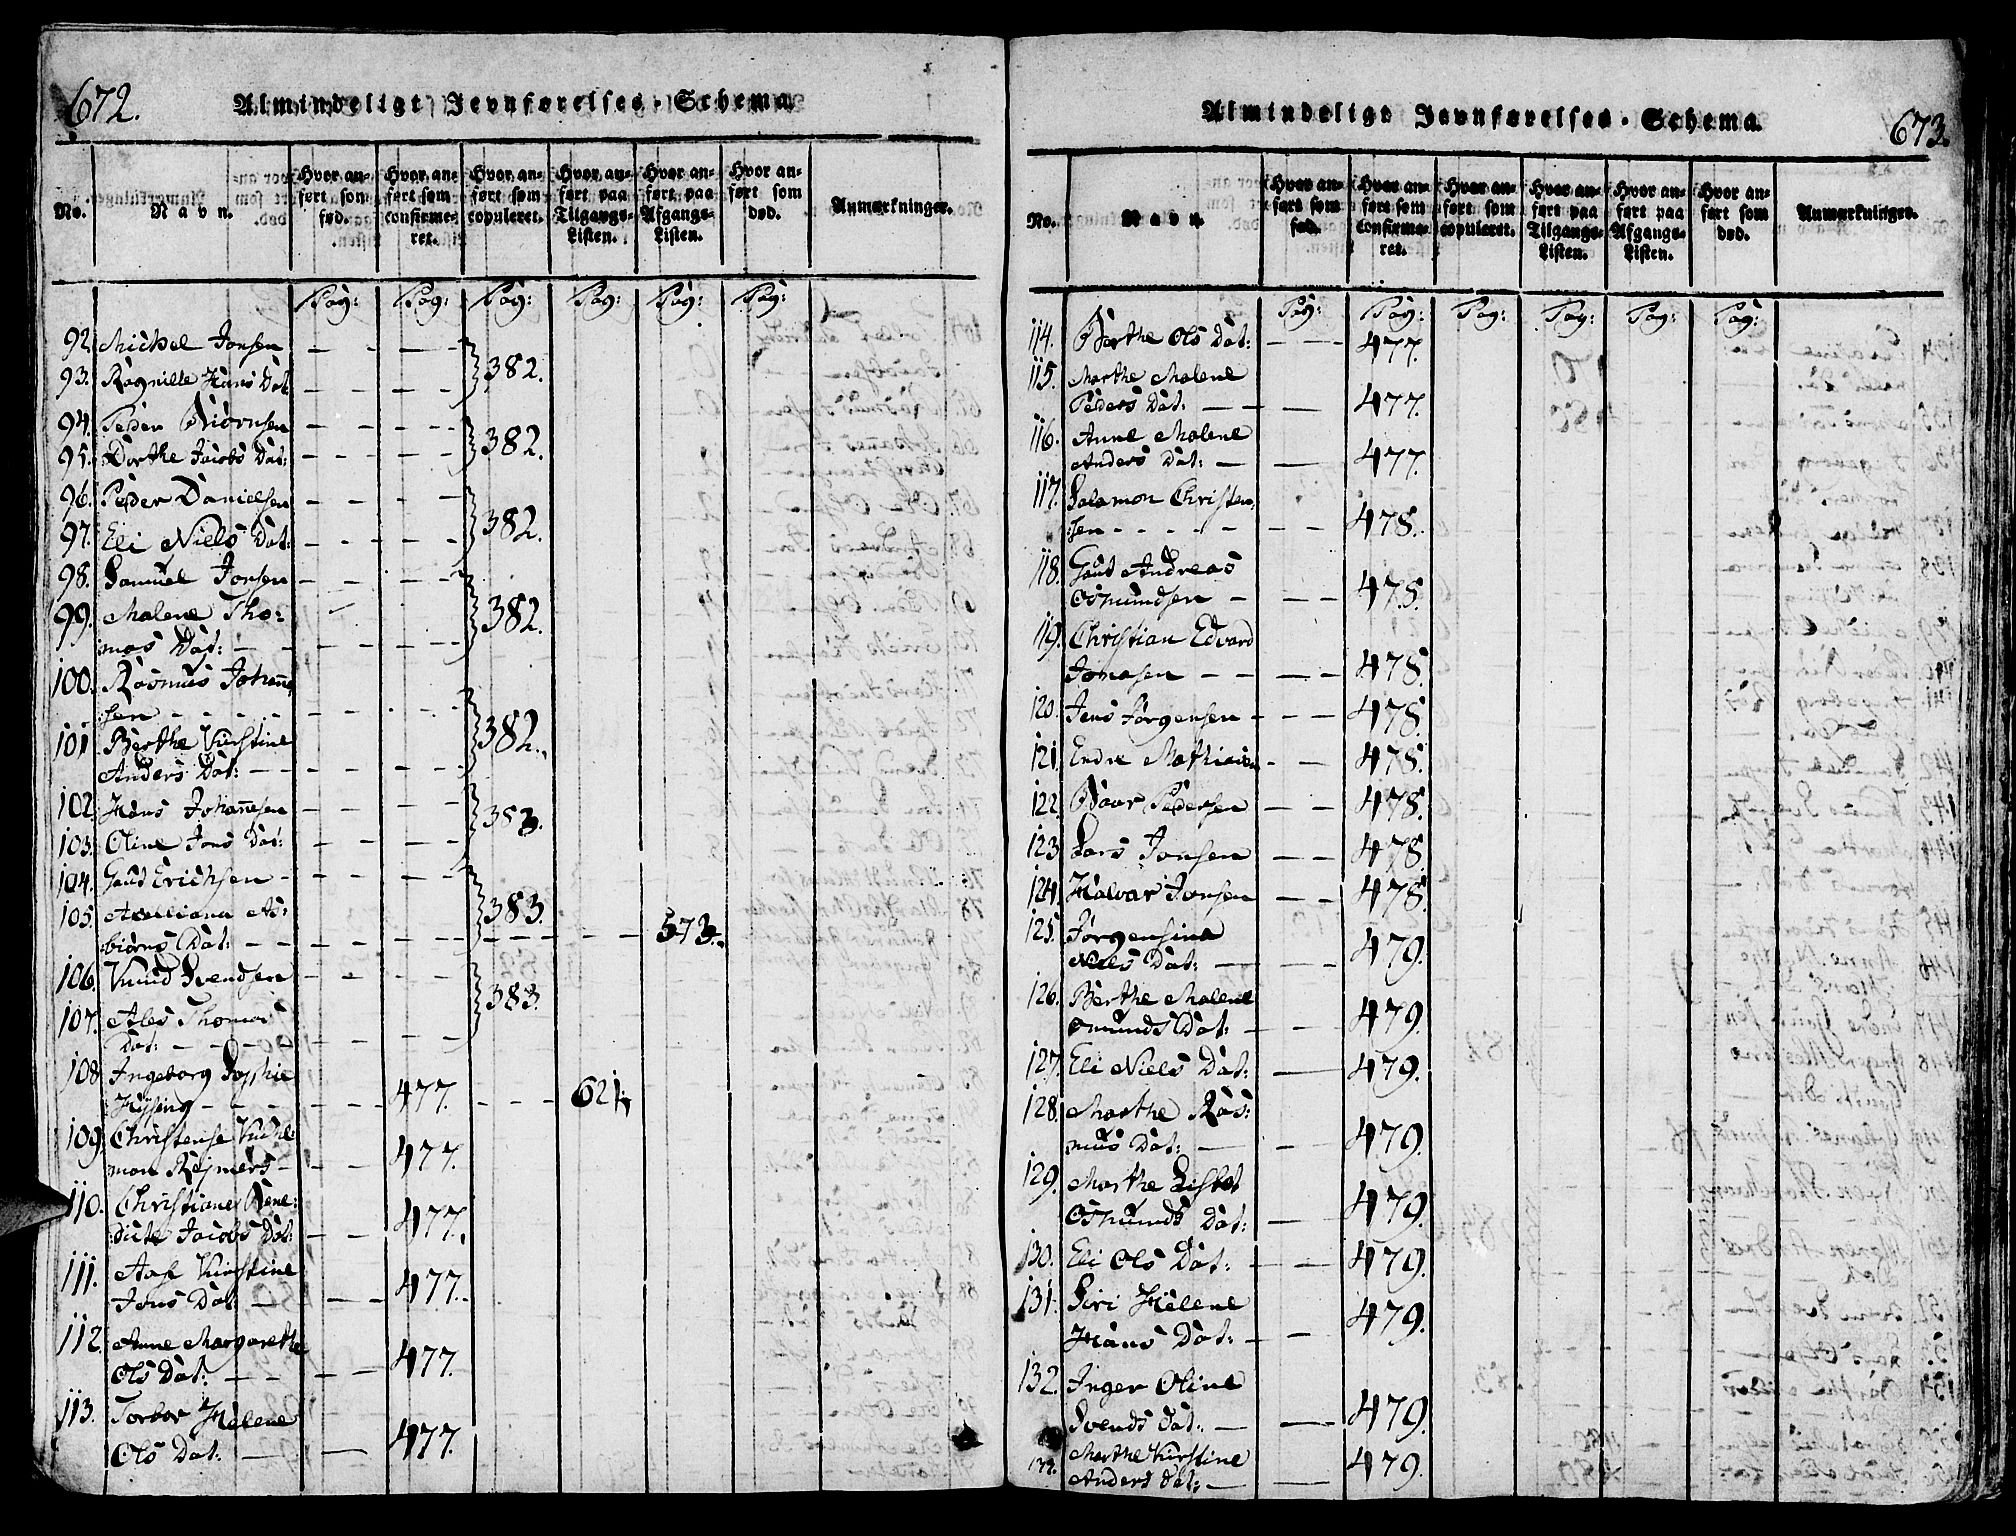 672.
Almindeligt Jevnførelses-Schema.
No.
Navn.
Hvor an-
ført som
fød.
Hvor an-
ført som
confirme-
ret.
Hvor an-
ført som
copuleret.
Hvor an-
ført paa
Tilgangs-
Listen.
Hvor an-
ført paa
Afgangs-
Listen.
Hvor an-
ført som
død.
Anmærkninger.
Pag: Pag: Pag: Pag: Pag: Pag:
92. Michel Jonsen
93. Ragnille Hans Dat 382.
94. Peder Biørnsen
95. Dorthe Jacobs Dat: 382.
96. Peder Danielsen
97. Eli Niels Dat: 382.
98. Samuel Jonsen
99. Malene Tho-
mas Dat: 382.
100. Rasmus Johanne
sen
101 Berthe Kirstine
Anders Dat: 382.
102. Hans Johannesen
103. Oline Jons Dat: 383.
104. Gaut Erichsen
105. As-
biørns Dat: 383. 573.
106. Knud Svendsen
107. Ales Thomas
Dat: 383.
108 Ingeborg Sophie
477. 621.
109. Christense
man Rejmers 477.
110. Christiane Bene-
dicte Jacobs Dat: 477.
111. Aase Kirstine
Jons Dat: 477.
112. Anne Margarethe
Ols Dat: 477.
113. Torbor Helene
Ols Dat: 477.
673.
Almindeligt Jevnførelses-Schema.
No.
Navn.
Hvor an-
ført som
fød.
Hvor an-
ført som
confirme-
ret.
Hvor an-
ført som
copuleret.
Hvor an-
ført paa
Tilgangs-
Listen.
Hvor an-
ført paa
Afgangs-
Listen.
Hvor an-
ført som
død.
Anmærkninger.
Pag: Pag: Pag: Pag: Pag: Pag:
114. Berthe Ols Dat: 477.
115. Marthe Malene
Peders Dat: 477.
116. Anne Malene
Anders Dat: 477.
117. Salamon Christen-
sen 478.
118. Gaut Andreas
Osmundsen 478.
119. Christian Edvard
Jonasen 478.
120. Jens Jørgensen 478.
121. Endre Mathiesen 478.
122. Baar Pedersen 478.
123. Lars Jonsen 478.
124. Halvar Jonsen 478.
125. Jørgensine
Niels Dat: 479.
126. Berthe Malene
Omunds Dat: 479.
127. Eli Niels Dat: 479.
128. Marthe Ras-
mus Dat: 479.
129. Marthe Lisbet
Osmunds Dat: 479.
130. Eli Ols Dat: 479.
131. Siri Helene
Hans Dat: 479.
132. Inger Oline
Svends Dat: 479.
133. Marthe Kirstine
Anders Dat: 479.